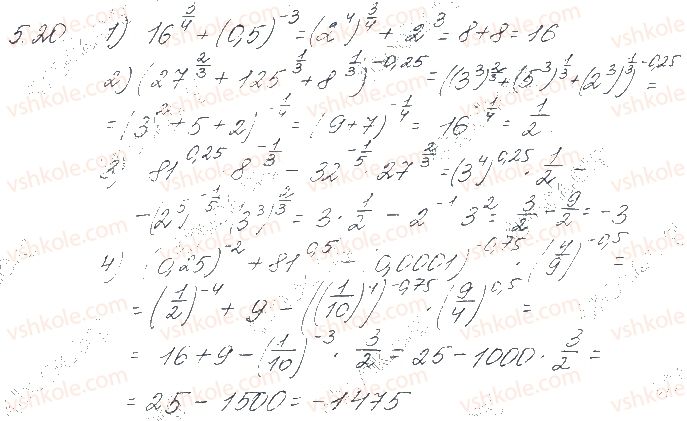 5.20 1) 16^{3/4} + (0,5)^{-3} = (2^4)^{3/4} + 2^3 = 8 + 8 = 16
2) (27^{2/3} + 125^{1/3} + 8^{1/3})^{-0,25} = ((3^3)^{2/3} + (5^3)^{1/3} + (2^3)^{1/3})^{-0,25} =
= (3^2 + 5 + 2)^{-1/4} = (9+7)^{-1/4} = 16^{-1/4} = 1/2.
3) 81^{0,25} · 8^{-1/3} - 32^{-1/5} · 27^{2/3} = (3^4)^{0,25} · 1/2 -
- (2^5)^{-1/5} · (3^3)^{2/3} = 3 · 1/2 - 2^{-1} · 3^2 = 3/2 - 9/2 = -3
4) (0,25)^{-2} + 81^{0,5} - (0,0001)^{-0,75} · (4/9)^{-0,5} =
= (1/2)^{-4} + 9 - ((1/10)^4)^{-0,75} · (9/4)^{0,5} =
= 16 + 9 - (1/10)^{-3} · 3/2 = 25 - 1000 · 3/2 =
= 25 - 1500 = -1475
vshkole.com